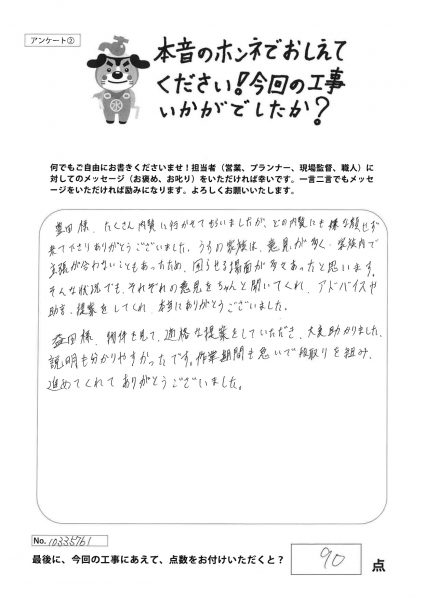 アンケート②
本音のホンネでおしえて
ください!今回の工事
いかがでしたか?
水
何でもご自由にお書きくださいませ!担当者(営業、プランナー、現場監督、職人)に
対してのメッセージ(お褒め、お叱り)をいただければ幸いです。一言二言でもメッセ
ージをいただければ励みになります。よろしくお願いいたします。
様、たくさん内覧に行かせてもらいましたが、どの内覧にも嫌な顔せず
来て下さりありがとうございました。うちの家族は、意見が多く、家族内で
主張が合わないこともあったため、困らせる場面が多々あったと思います。
そんな状況でも、それぞれの意見をちゃんと聞いてくれ、アドバイスや
助言、提案をしてくれ、本当にありがとうございました。
益田様、物件を見て、適格な提案をしていただき、大変助かりました。
説明も分かりやすかったです。作業期間も急いで段取りを組み、
進めてくれてありがとうございました。
No. 10335761
最後に、今回の工事にあえて、点数をお付けいただくと? 90 点